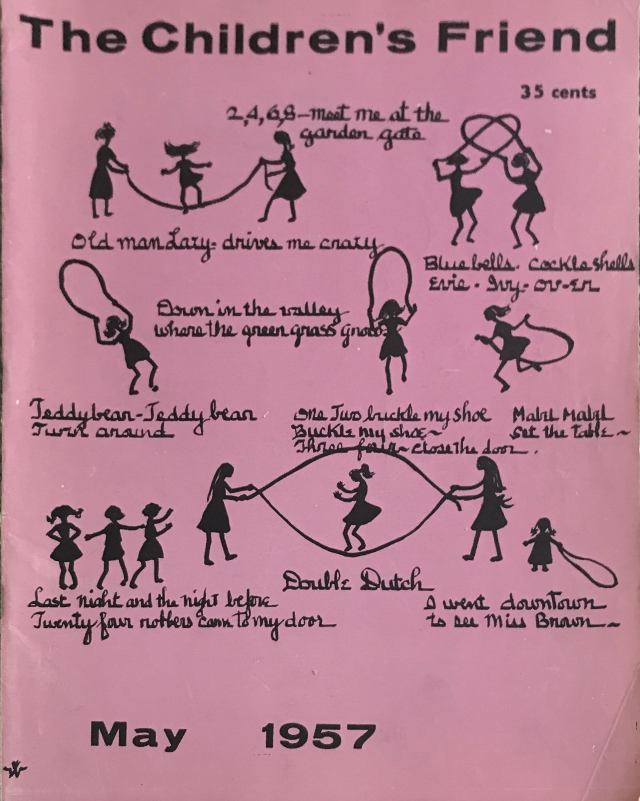 The Children's Friend
35 cents
2,4,6,8-meet me at the
garden gate
Old man Lazy- drives me crazy
Blue bells. Cockle shells
Evie. Ivy. ov-er
Down in the valley
where the green grass grows
Teddy bear-Teddy bear
Turn around
One Two buckle my shoe
Buckle my shoe~
Three four~ close the door.
Mabel Mabel
set the table~
Double Dutch
Last night and the night before
Twenty four robbers came to my door
I went downtown
to see Miss Brown~
May 1957